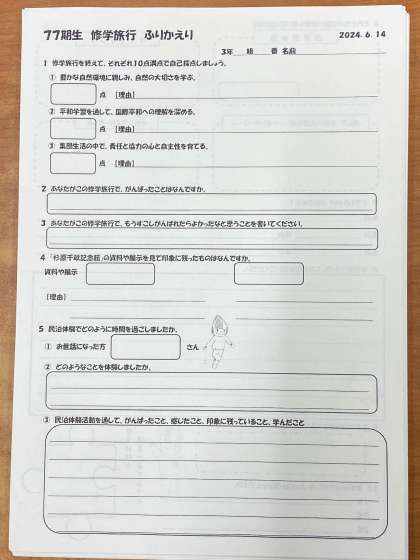 77期生 修学旅行 ふりかえり
2024. 6. 14
3年 組 番 名前
1 修学旅行を終えて、それぞれ10点満点で自己採点しましょう。
① 豊かな自然環境に親しみ、自然の大切さを学ぶ。
点 [理由]
② 平和学習を通して、国際平和への理解を深める。
点 [理由]
③ 集団生活の中で、責任と協力の心と自主性を育てる。
点 [理由]
2 あなたがこの修学旅行で、がんばったことはなんですか。
3 あなたがこの修学旅行で、もうすこしがんばれたらよかったなと思うことを書いてください。
4 「杉原千畝記念館」の資料や展示を見て印象に残ったものはなんですか。
資料や展示
[理由]
5 民泊体験でどのように時間を過ごしましたか。
① お世話になった方 さん
② どのようなことを体験しましたか。
③ 民泊体験活動を通して、がんばったこと、感じたこと、印象に残っていること、学んだこと